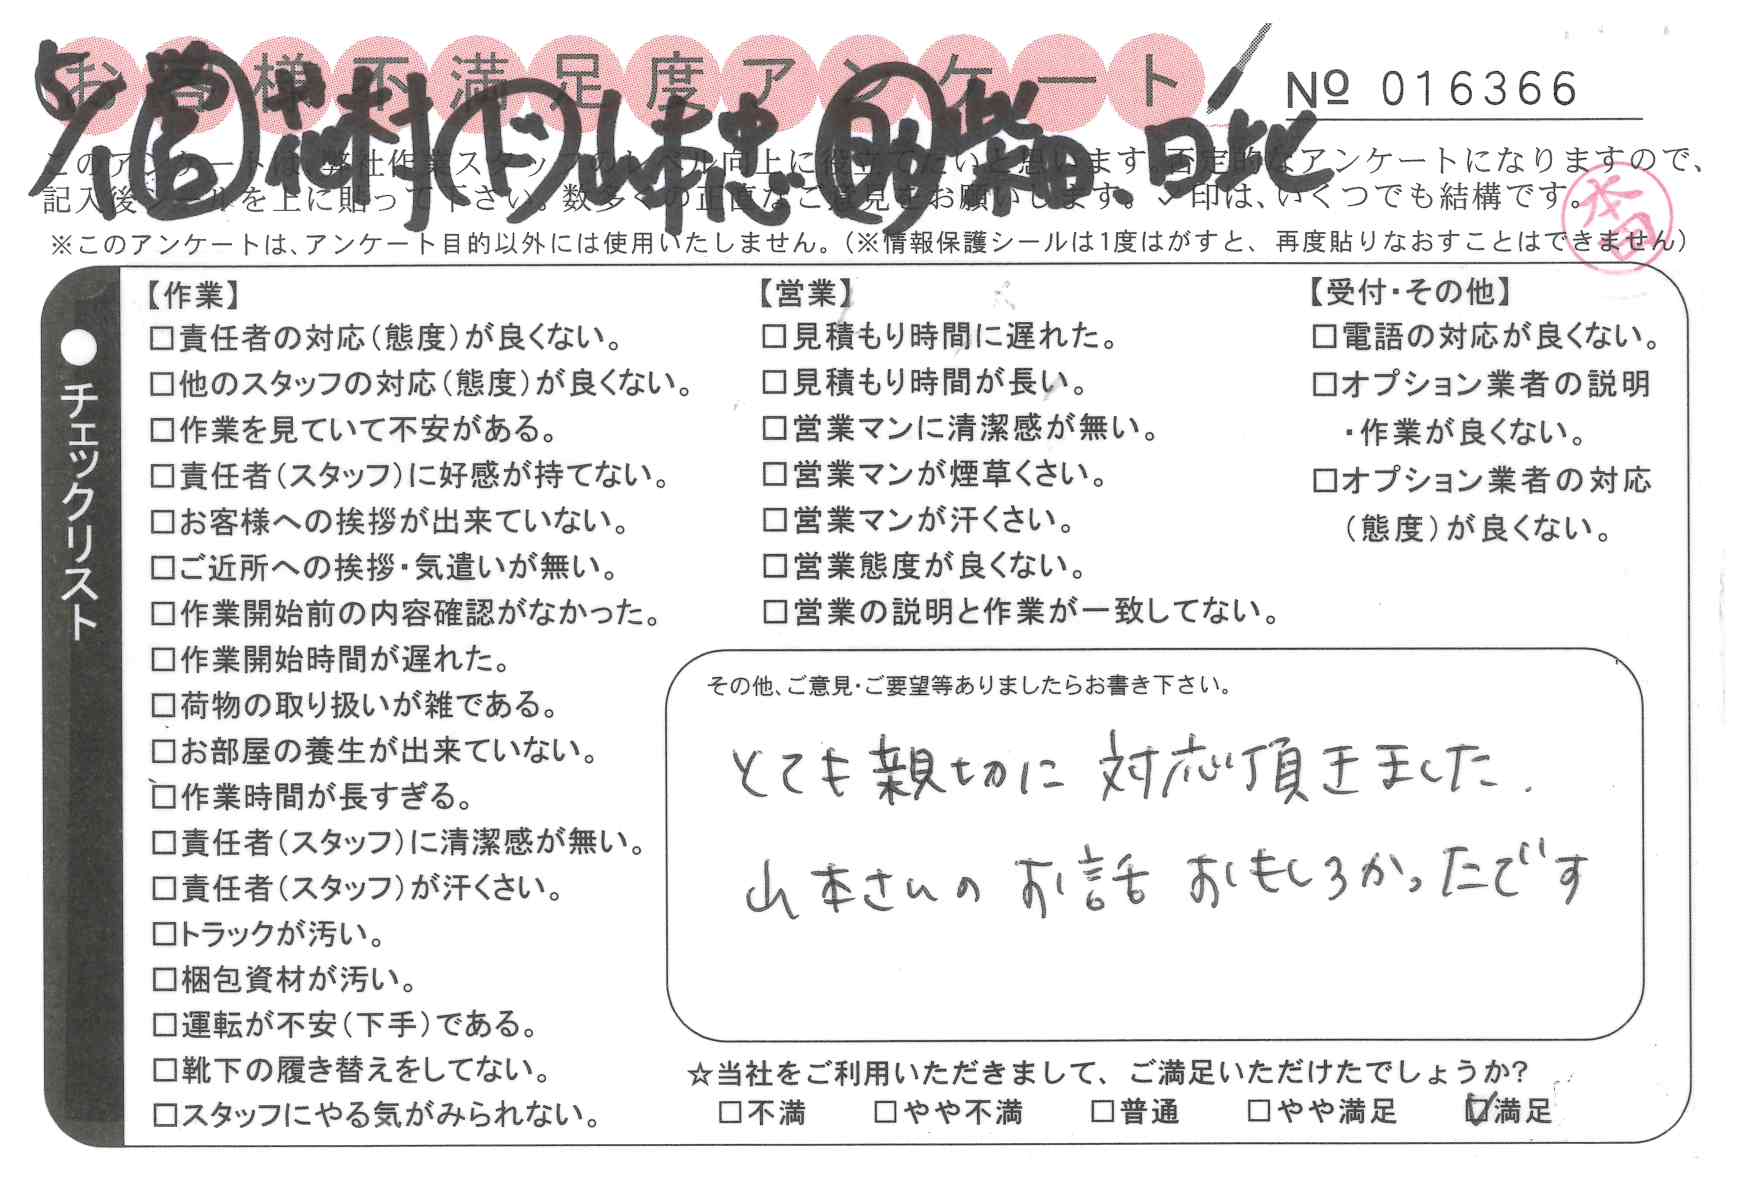 お客様不満足度アンケート
№ 016366
このアンケートは、弊社作業スタッフのレベル向上に役立てたいと思います。否定的なアンケートになりますので、
記入後シールを上に貼って下さい。数多くの正直なご意見をお願いします。✓印は、いくつでも結構です。
※このアンケートは、アンケート目的以外には使用いたしません。（※情報保護シールは1度はがすと、再度貼りなおすことはできません）
本田
●チェックリスト
【作業】
□責任者の対応（態度）が良くない。
□他のスタッフの対応（態度）が良くない。
□作業を見ていて不安がある。
□責任者（スタッフ）に好感が持てない。
□お客様への挨拶が出来ていない。
□ご近所への挨拶・気遣いが無い。
□作業開始前の内容確認がなかった。
□作業開始時間が遅れた。
□荷物の取り扱いが雑である。
□お部屋の養生が出来ていない。
□作業時間が長すぎる。
□責任者（スタッフ）に清潔感が無い。
□責任者（スタッフ）が汗くさい。
□トラックが汚い。
□梱包資材が汚い。
□運転が不安（下手）である。
□靴下の履き替えをしてない。
□スタッフにやる気がみられない。
【営業】
□見積もり時間に遅れた。
□見積もり時間が長い。
□営業マンに清潔感が無い。
□営業マンが煙草くさい。
□営業マンが汗くさい。
□営業態度が良くない。
□営業の説明と作業が一致してない。
【受付・その他】
□電語の対応が良くない。
□オプション業者の説明
・作業が良くない。
□オプション業者の対応
（態度）が良くない。
その他、ご意見・ご要望等ありましたらお書き下さい。
とても親切に対応頂きました.
山本さんのお話おもしろかったです
☆当社をご利用いただきまして、ご満足いただけたでしょうか?
□不満 □やや不満 □普通 □やや満足 ☑満足